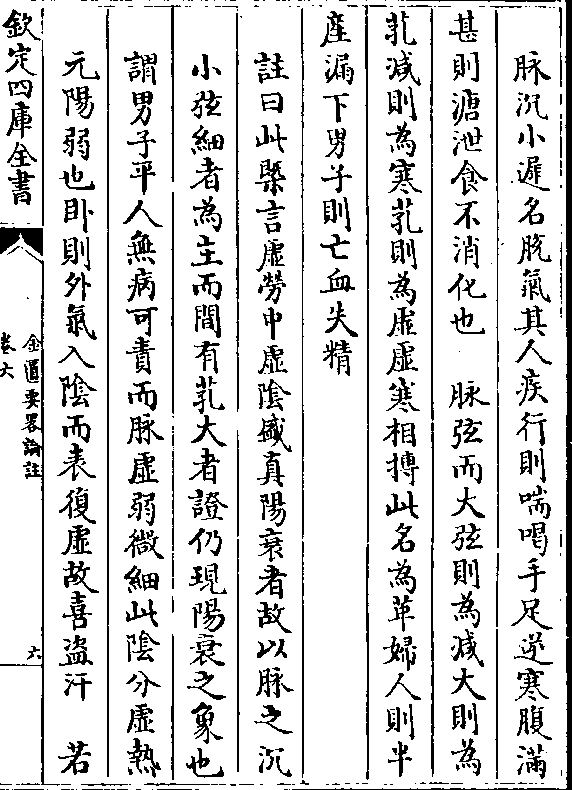 脉沉小遲名脫氣其人疾行則喘喝手足逆寒腹滿
甚則溏泄食不消化也　脉弦而大弦則為減大則為
芤減則為寒芤則為虛虛寒相搏此名為革婦人則半
產漏下男子則亡血失精
註曰此槩言虛勞中虛隂盛真陽衰者故以脉之沉
小弦細者為主而間有芤大者證仍現陽衰之象也
謂男子平人無病可責而脉虛弱微細此隂分虛熱
元陽弱也卧則外氣入隂而表復虛故喜盗汗　若
欽定四庫全書
金匱要畧論註
卷六
六